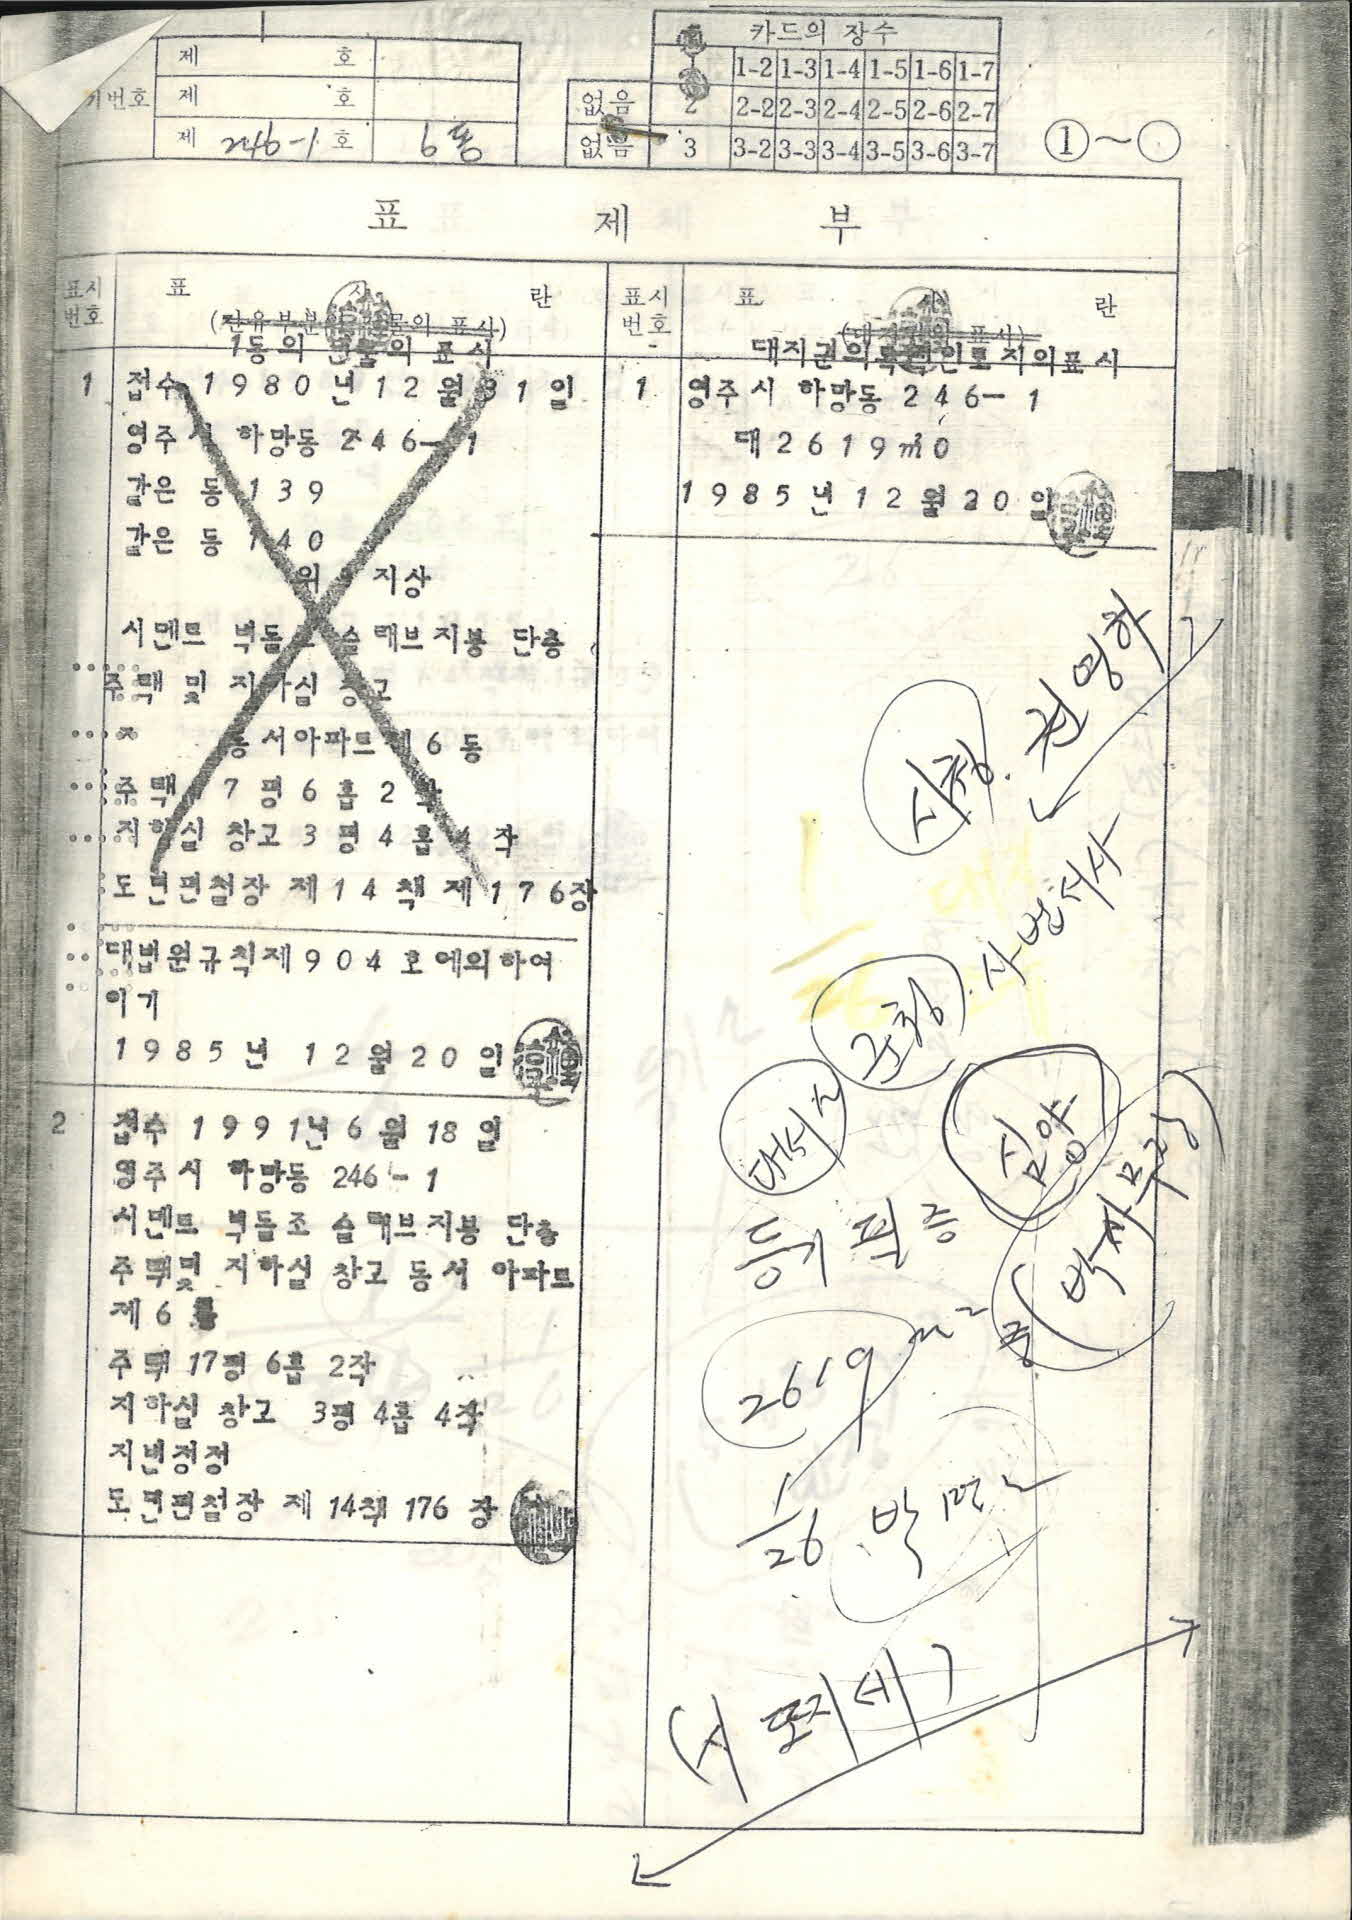 카드의 장수
제 호
1-2 1-3 1-4 1-5 1-6 1-7
기번호 제 호
없음 2 2-2 2-3 2-4 2-5 2-6 2-7
제 246-1 호 6동
없음 3 3-2 3-3 3-4 3-5 3-6 3-7
①~○
표 제 부
표시번호 표 시 란
(전유부분의 건물의 표시)
1동의 건물의 표시
1 접수 1980년 12월 31일
영주시 하망동 246-1
같은 동 139
같은 동 140
위 지상
시멘트 벽돌조 슬래브지붕 단층
주택 및 지하실 창고
동서아파트 제6동
주택 17평 6홉 2작
지하실 창고 3평 4홉 4작
도면편철장 제14책 제176장
대법원규칙제904호에의하여
이기
1985년 12월 20일
2 접수 1991년 6월 18일
영주시 하망동 246-1
시멘트 벽돌조 슬래브지붕 단층
주택및 지하실 창고 동서 아파트
제6동
주택 17평 6홉 2작
지하실 창고 3평 4홉 4작
지번정정
도면편철장 제 14책 176 장
표시번호 표 시 란
(대지권의 표시)
대지권의목적인토지의표시
1 영주시 하망동 246-1
대 2619㎡0
1985년 12월 20일
시청. 권영하
구청. 사법서사
등기 필증
2619 m2 중
1/26